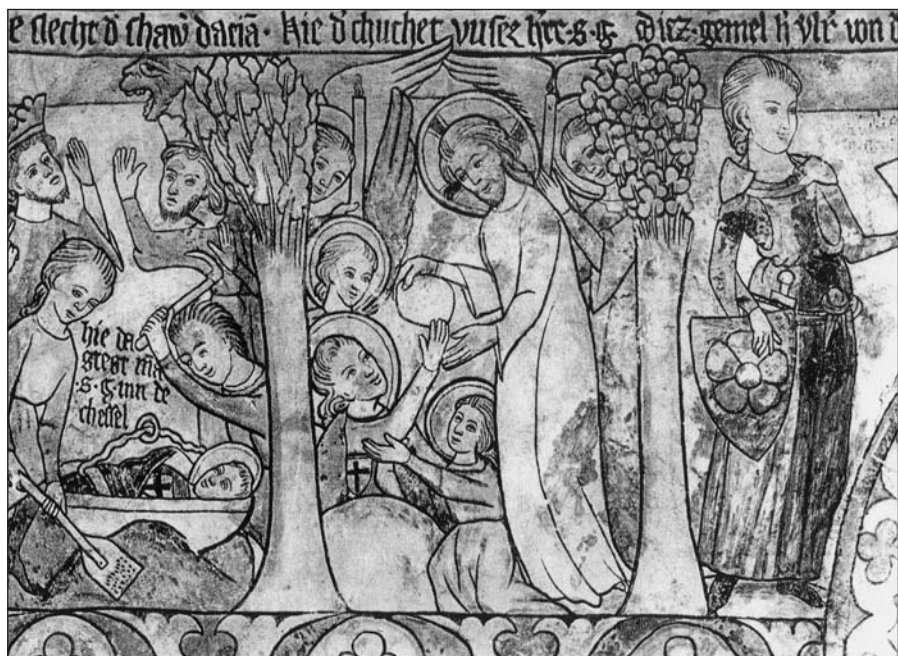 e slecht d' shaw daciā · hie d'chuchet vnser h're · s · g · Diz · gemel h' vlr' von d
hie da
s · g · inn de
chessel